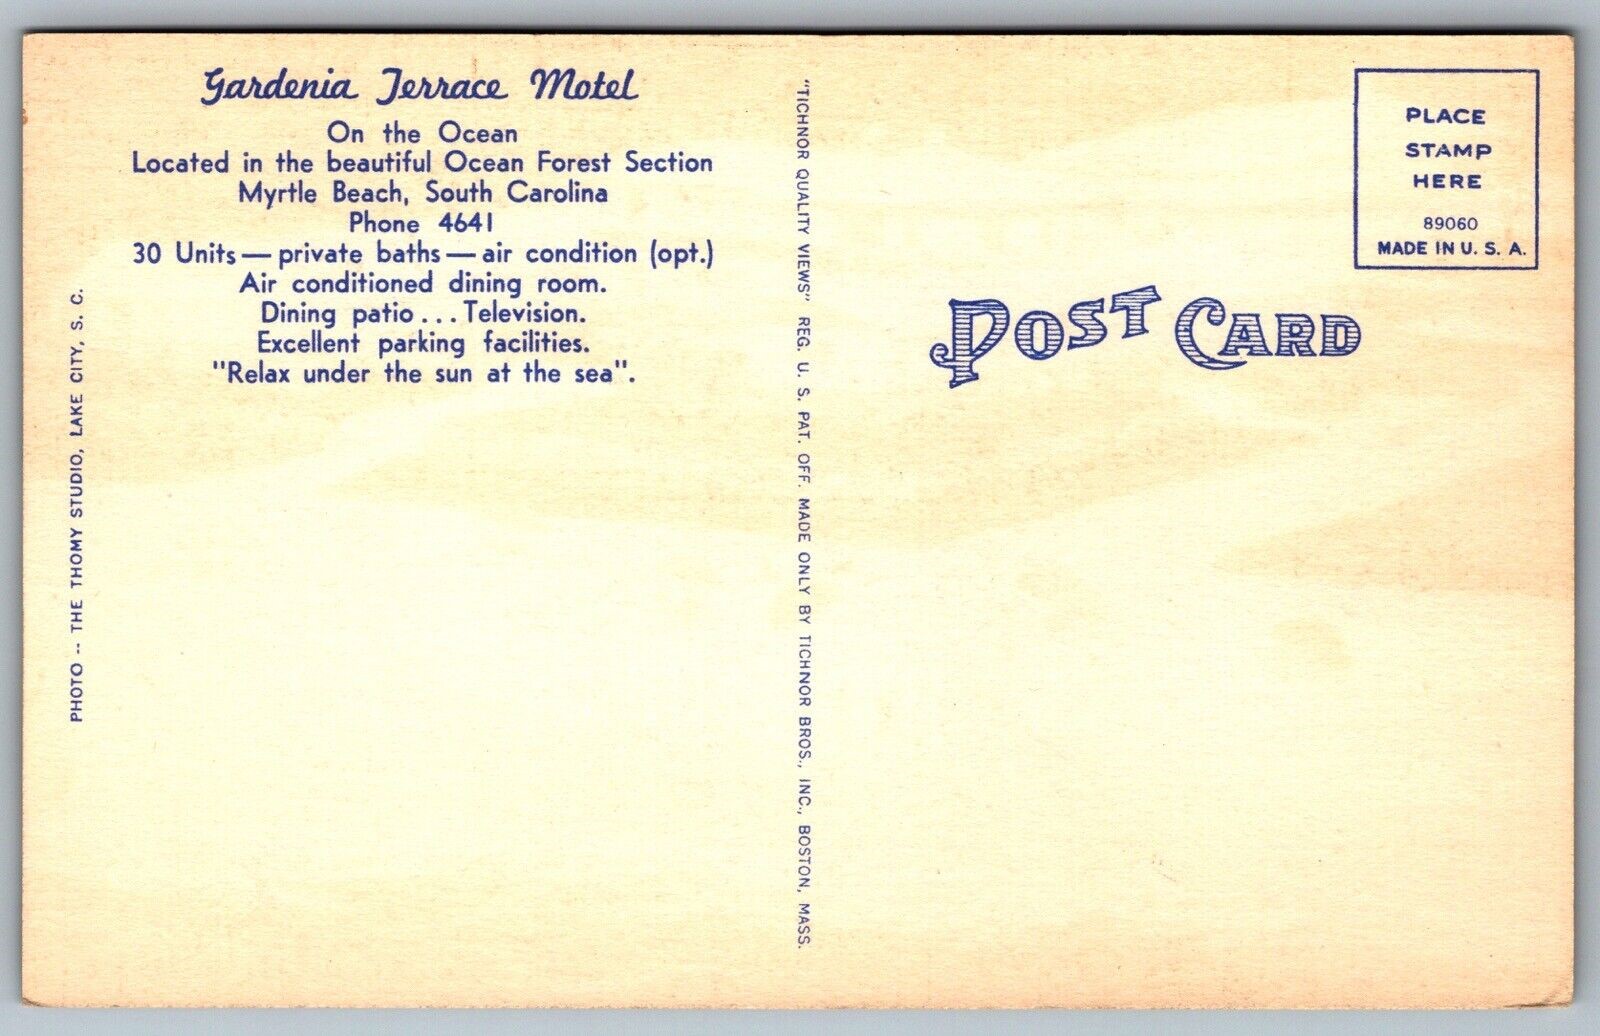 Gardenia Terrace Motel
On the Ocean
Located in the beautiful Ocean Forest Section
Myrtle Beach, South Carolina
Phone 4641
30 Units — private baths — air condition (opt.)
Air conditioned dining room.
Dining patio . . . Television.
Excellent parking facilities.
"Relax under the sun at the sea".
PHOTO -- THE THOMY STUDIO, LAKE CITY, S. C.
"TICHNOR QUALITY VIEWS" REG. U. S. PAT. OFF. MADE ONLY BY TICHNOR BROS., INC., BOSTON, MASS.
PLACE
STAMP
HERE
89060
MADE IN U. S. A.
POST CARD